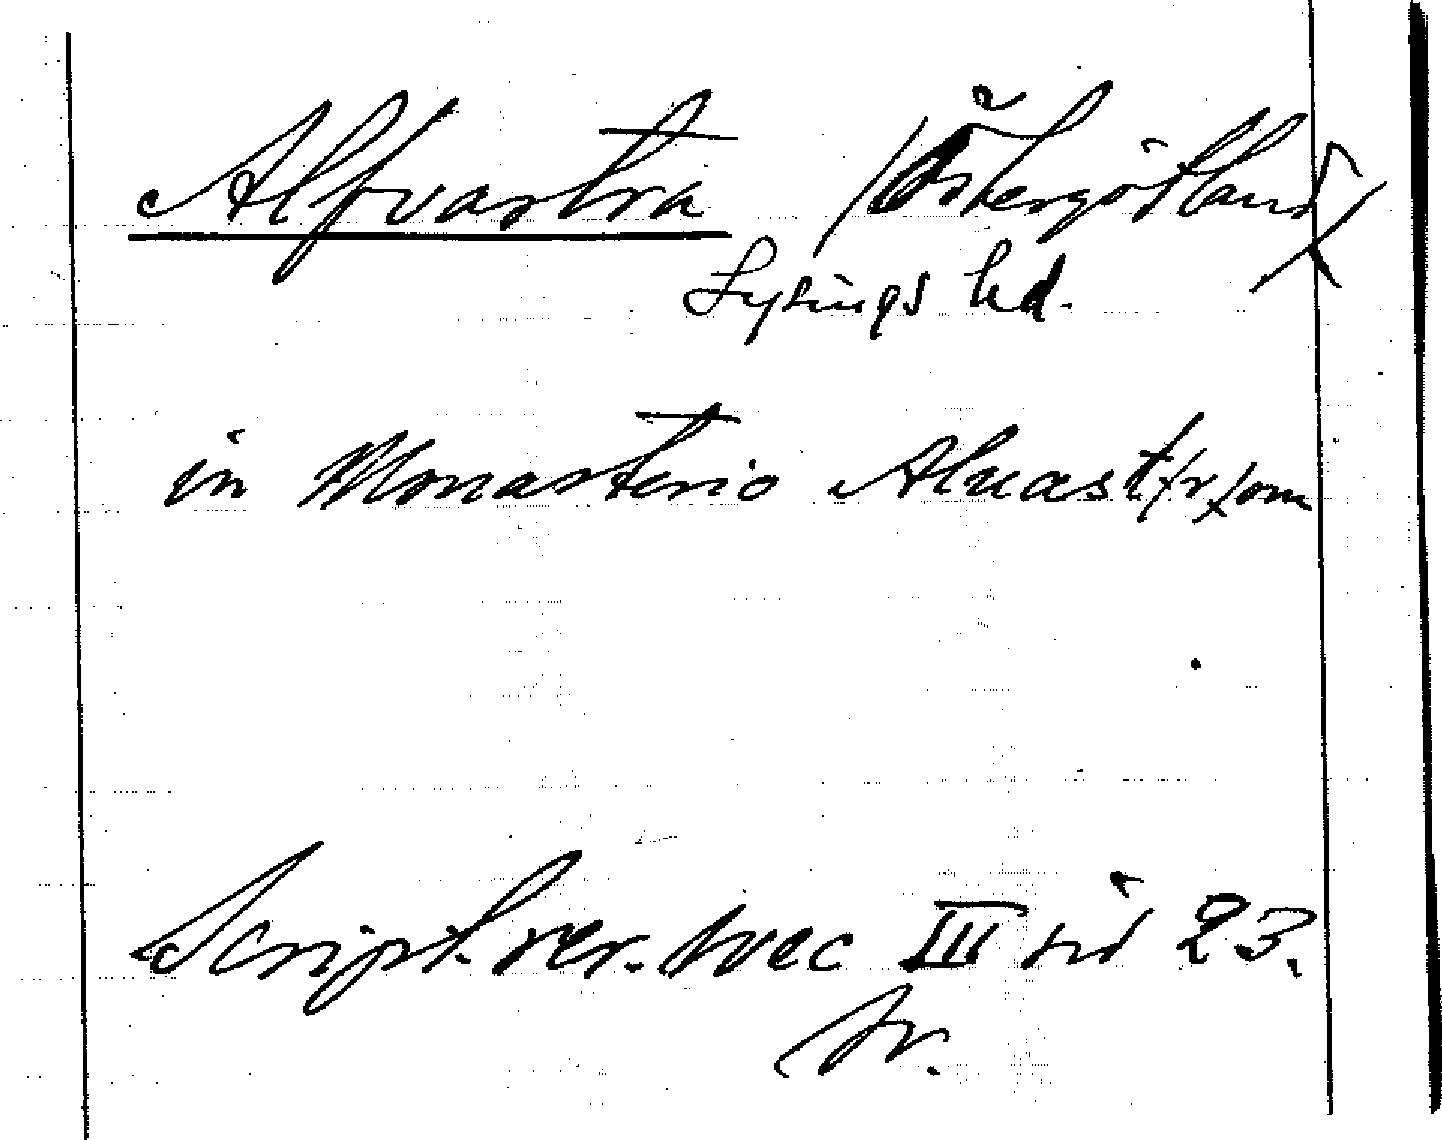 Alfvastra /Östergötland/
Lysings hd.
in Monasterio Aluast/r/om
Script. rer. svec III sid 23.